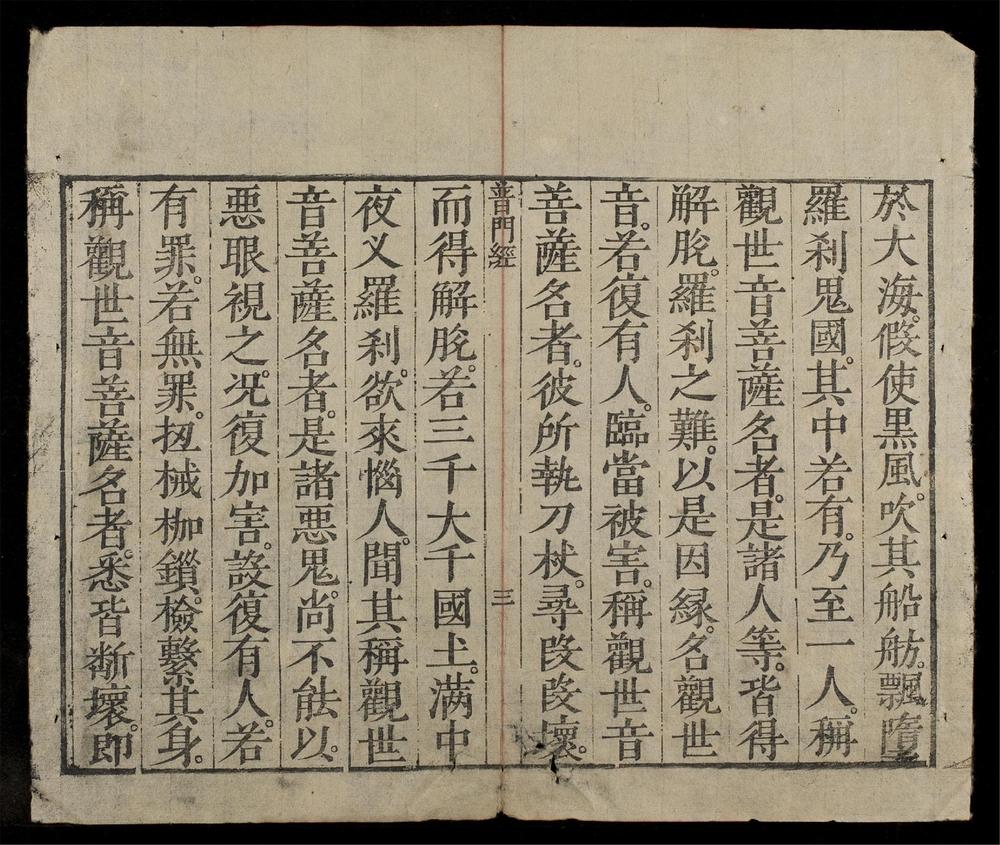 於大海。假使黒風。吹其船舫。飄墮
羅刹鬼國。其中若有。乃至一人。稱
觀世音菩薩名者。是諸人等。皆得
解脫。羅刹之難。以是因縁。名觀世
音。若復有人。臨當被害。稱觀世音
菩薩名者。彼所執刀杖。尋段段壞。
普門經 三
而得解脫。若三千大千國土。滿中
夜叉羅刹。欲來惱人。聞其稱觀世
音菩薩名者。是諸惡鬼。尚不能以
惡眼視之。况復加害。設復有人。若
有罪。若無罪。杻械枷鎖。檢繫其身。
稱觀世音菩薩名者。悉皆斷壞。即